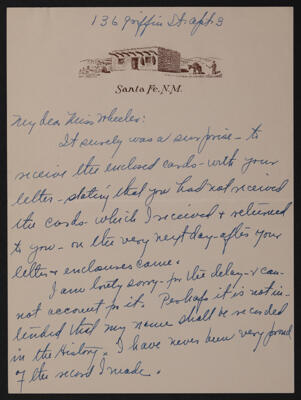 136 Griffin St apt 3
Santa Fe, N.M.
My dear Miss Wheeler:
It surely was a surprise - to
receive the enclosed cards - with your
letter - stating that you had not received
the cards which I received & returned
to you - on the very next day - after your
letter & enclosures came.
I am sorry - for the delay - & can-
not account for it. Perhaps it is not in-
tended that my name shall be recorded
in the History. I have never been very proud
of the record I made.